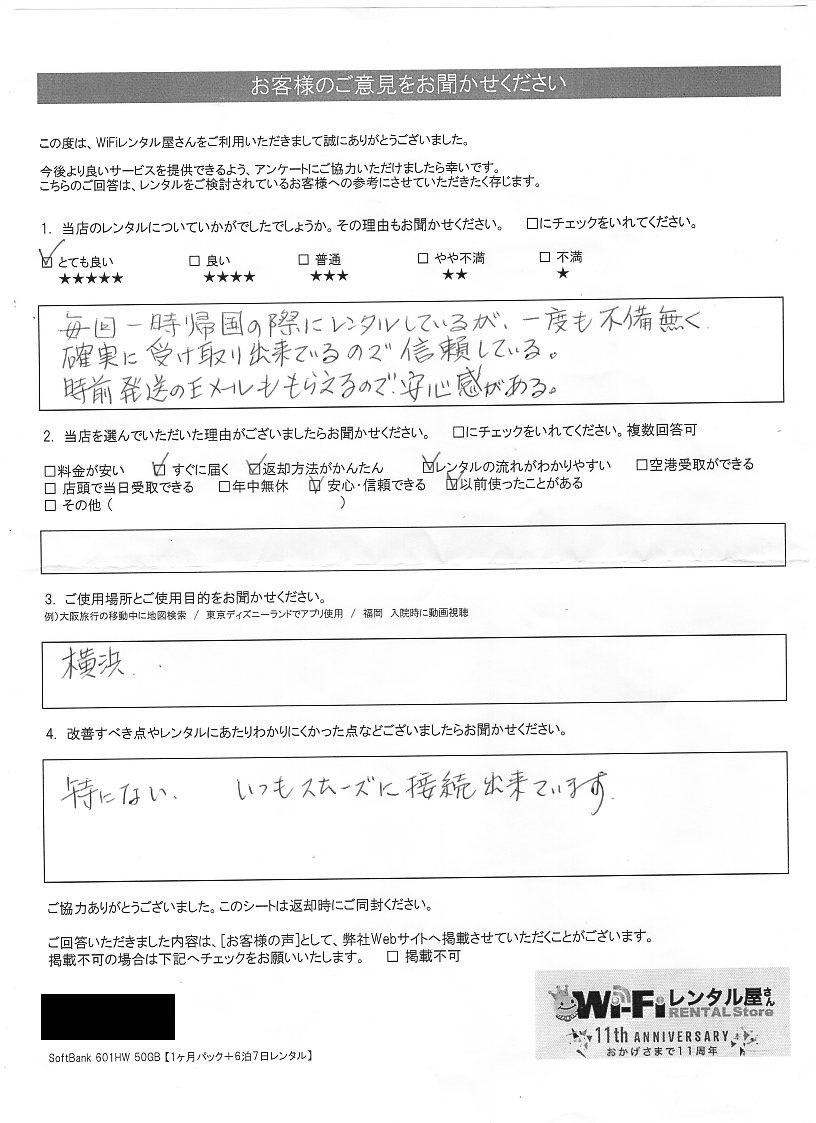 お客様のご意見をお聞かせください
この度は、WiFiレンタル屋さんをご利用いただきまして誠にありがとうございました。
今後より良いサービスを提供できるよう、アンケートにご協力いただけましたら幸いです。
こちらのご回答は、レンタルをご検討されているお客様への参考にさせていただきたく存じます。
1. 当店のレンタルについていかがでしたでしょうか。その理由もお聞かせください。 □にチェックをいれてください。
☑ とても良い □ 良い □ 普通 □ やや不満 □ 不満
★★★★★ ★★★★ ★★★ ★★ ★
毎回一時帰国の際にレンタルしているが、一度も不備無く
確実に受け取り出来ているので信頼している。
時前発送のEメールももらえるので安心感がある。
2. 当店を選んでいただいた理由がございましたらお聞かせください。 □にチェックをいれてください。複数回答可
□料金が安い ☑ すぐに届く ☑返却方法がかんたん ☑レンタルの流れがわかりやすい □空港受取ができる
□ 店頭で当日受取できる □年中無休 ☑ 安心・信頼できる ☑以前使ったことがある
□ その他 ( )
3. ご使用場所とご使用目的をお聞かせください。
例)大阪旅行の移動中に地図検索 / 東京ディズニーランドでアプリ使用 / 福岡 入院時に動画視聴
横浜
4. 改善すべき点やレンタルにあたりわかりにくかった点などございましたらお聞かせください。
特にない、 いつもスムーズに接続出来ています。
ご協力ありがとうございました。このシートは返却時にご同封ください。
ご回答いただきました内容は、[お客様の声]として、弊社Webサイトへ掲載させていただくことがございます。
掲載不可の場合は下記へチェックをお願いいたします。 □ 掲載不可
Wi-Fiレンタル屋さん
RENTAL Store
11th ANNIVERSARY
おかげさまで11周年
SoftBank 601HW 50GB【1ヶ月パック+6泊7日レンタル】